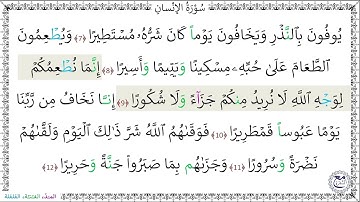 سُورَةُ الإِنسَانِ
يُوفُونَ بِٱلنَّذْرِ وَيَخَافُونَ يَوْمًا كَانَ شَرُّهُۥ مُسْتَطِيرًا ﴿٧﴾ وَيُطْعِمُونَ
ٱلطَّعَامَ عَلَىٰ حُبِّهِۦ مِسْكِينًا وَيَتِيمًا وَأَسِيرًا ﴿٨﴾ إِنَّمَا نُطْعِمُكُمْ
لِوَجْهِ ٱللَّهِ لَا نُرِيدُ مِنكُمْ جَزَآءً وَلَا شُكُورًا ﴿٩﴾ إِنَّا نَخَافُ مِن رَّبِّنَا
يَوْمًا عَبُوسًا قَمْطَرِيرًا ﴿١٠﴾ فَوَقَىٰهُمُ ٱللَّهُ شَرَّ ذَٰلِكَ ٱلْيَوْمِ وَلَقَّىٰهُمْ
نَضْرَةً وَسُرُورًا ﴿١١﴾ وَجَزَىٰهُم بِمَا صَبَرُوا۟ جَنَّةً وَحَرِيرًا ﴿١٢﴾
المد، الغنة، القلقلة